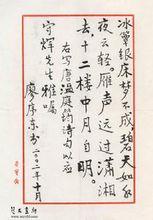 冰簟银床梦不成碧天如水
夜云轻雁声远过潇湘
去十二楼中月自明
右写唐温庭筠诗句以应
守辉先生雅嘱
廖序东书二〇〇二年十月